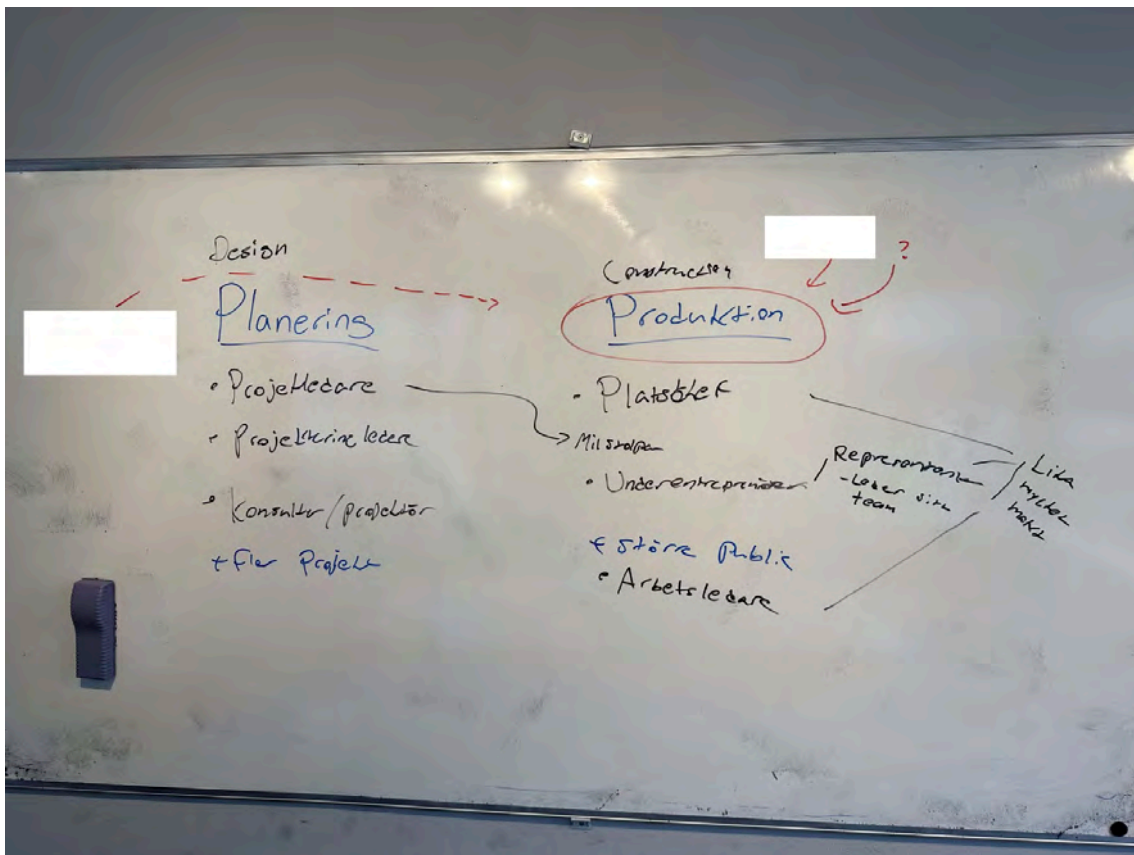 Design
Planering
• Projektledare
• Projektering ledare
• Konsulter/projektör
+ fler Projekt
?
Construction
Produktion
• Platschef
Milstolpar
• Underentreprenörer
+ Större Public
• Arbetsledare
Representanter
- Leder sitt
team
Lika
mycket
makt